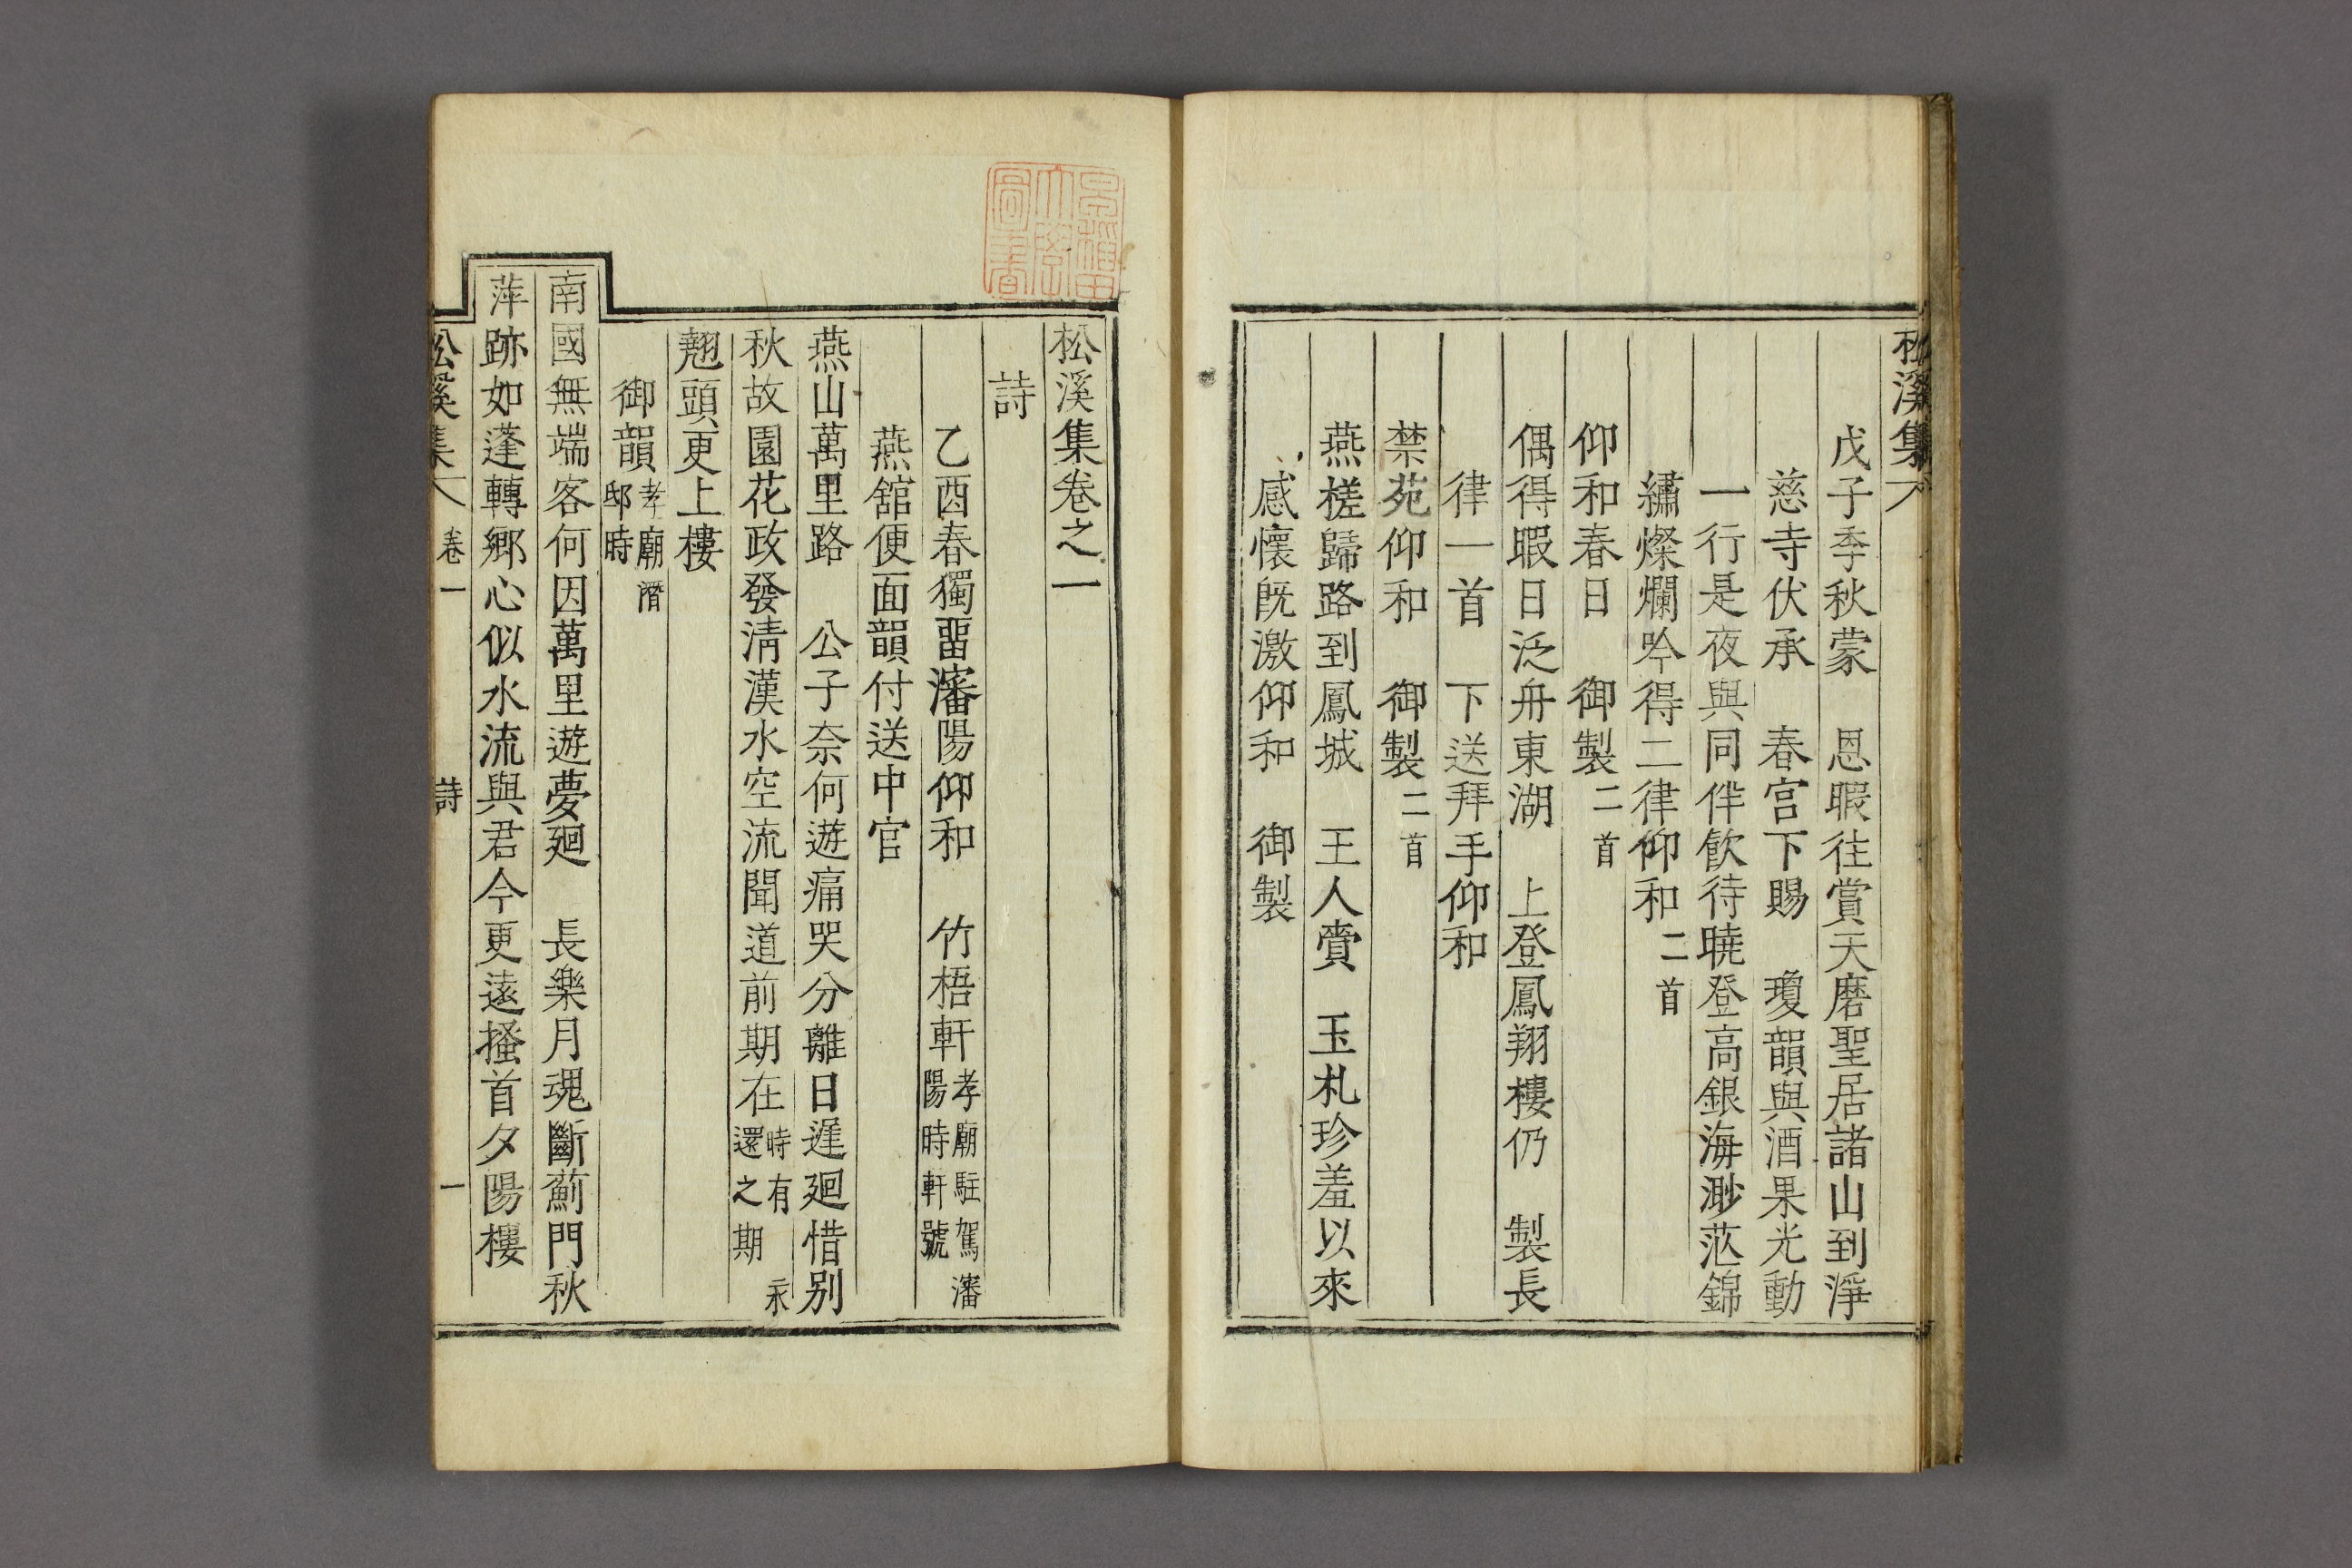 松溪集
戊子季秋蒙　恩暇往賞天磨聖居諸山到淨
慈寺伏承　春宮下賜　瓊韻與酒果光動
一行是夜與同伴飮待曉登高銀海渺茫錦
繡燦爛吟得二律仰和二首
仰和春日　御製二首
偶得暇日泛舟東湖　上登鳳翔樓仍　製長
律一首　下送拜手仰和
禁苑仰和　御製二首
燕槎歸路到鳳城　王人賫　玉札珍羞以來
感懷旣激仰和　御製
早稲田大學圖書
松溪集卷之一
詩
乙酉春獨畱瀋陽仰和　竹梧軒孝廟駐駕瀋陽時軒號
燕舘便面韻付送中官
燕山萬里路　公子奈何遊痛哭分離日遲廻惜别
秋故園花政發淸漢水空流聞道前期在時有永還之期
翹頭更上樓
御韻孝廟潛邸時
南國無端客何因萬里遊夢廻　長樂月魂斷薊門秋
萍跡如蓬轉鄕心似水流與君今更遠搔首夕陽樓
松溪集　卷一　詩　一